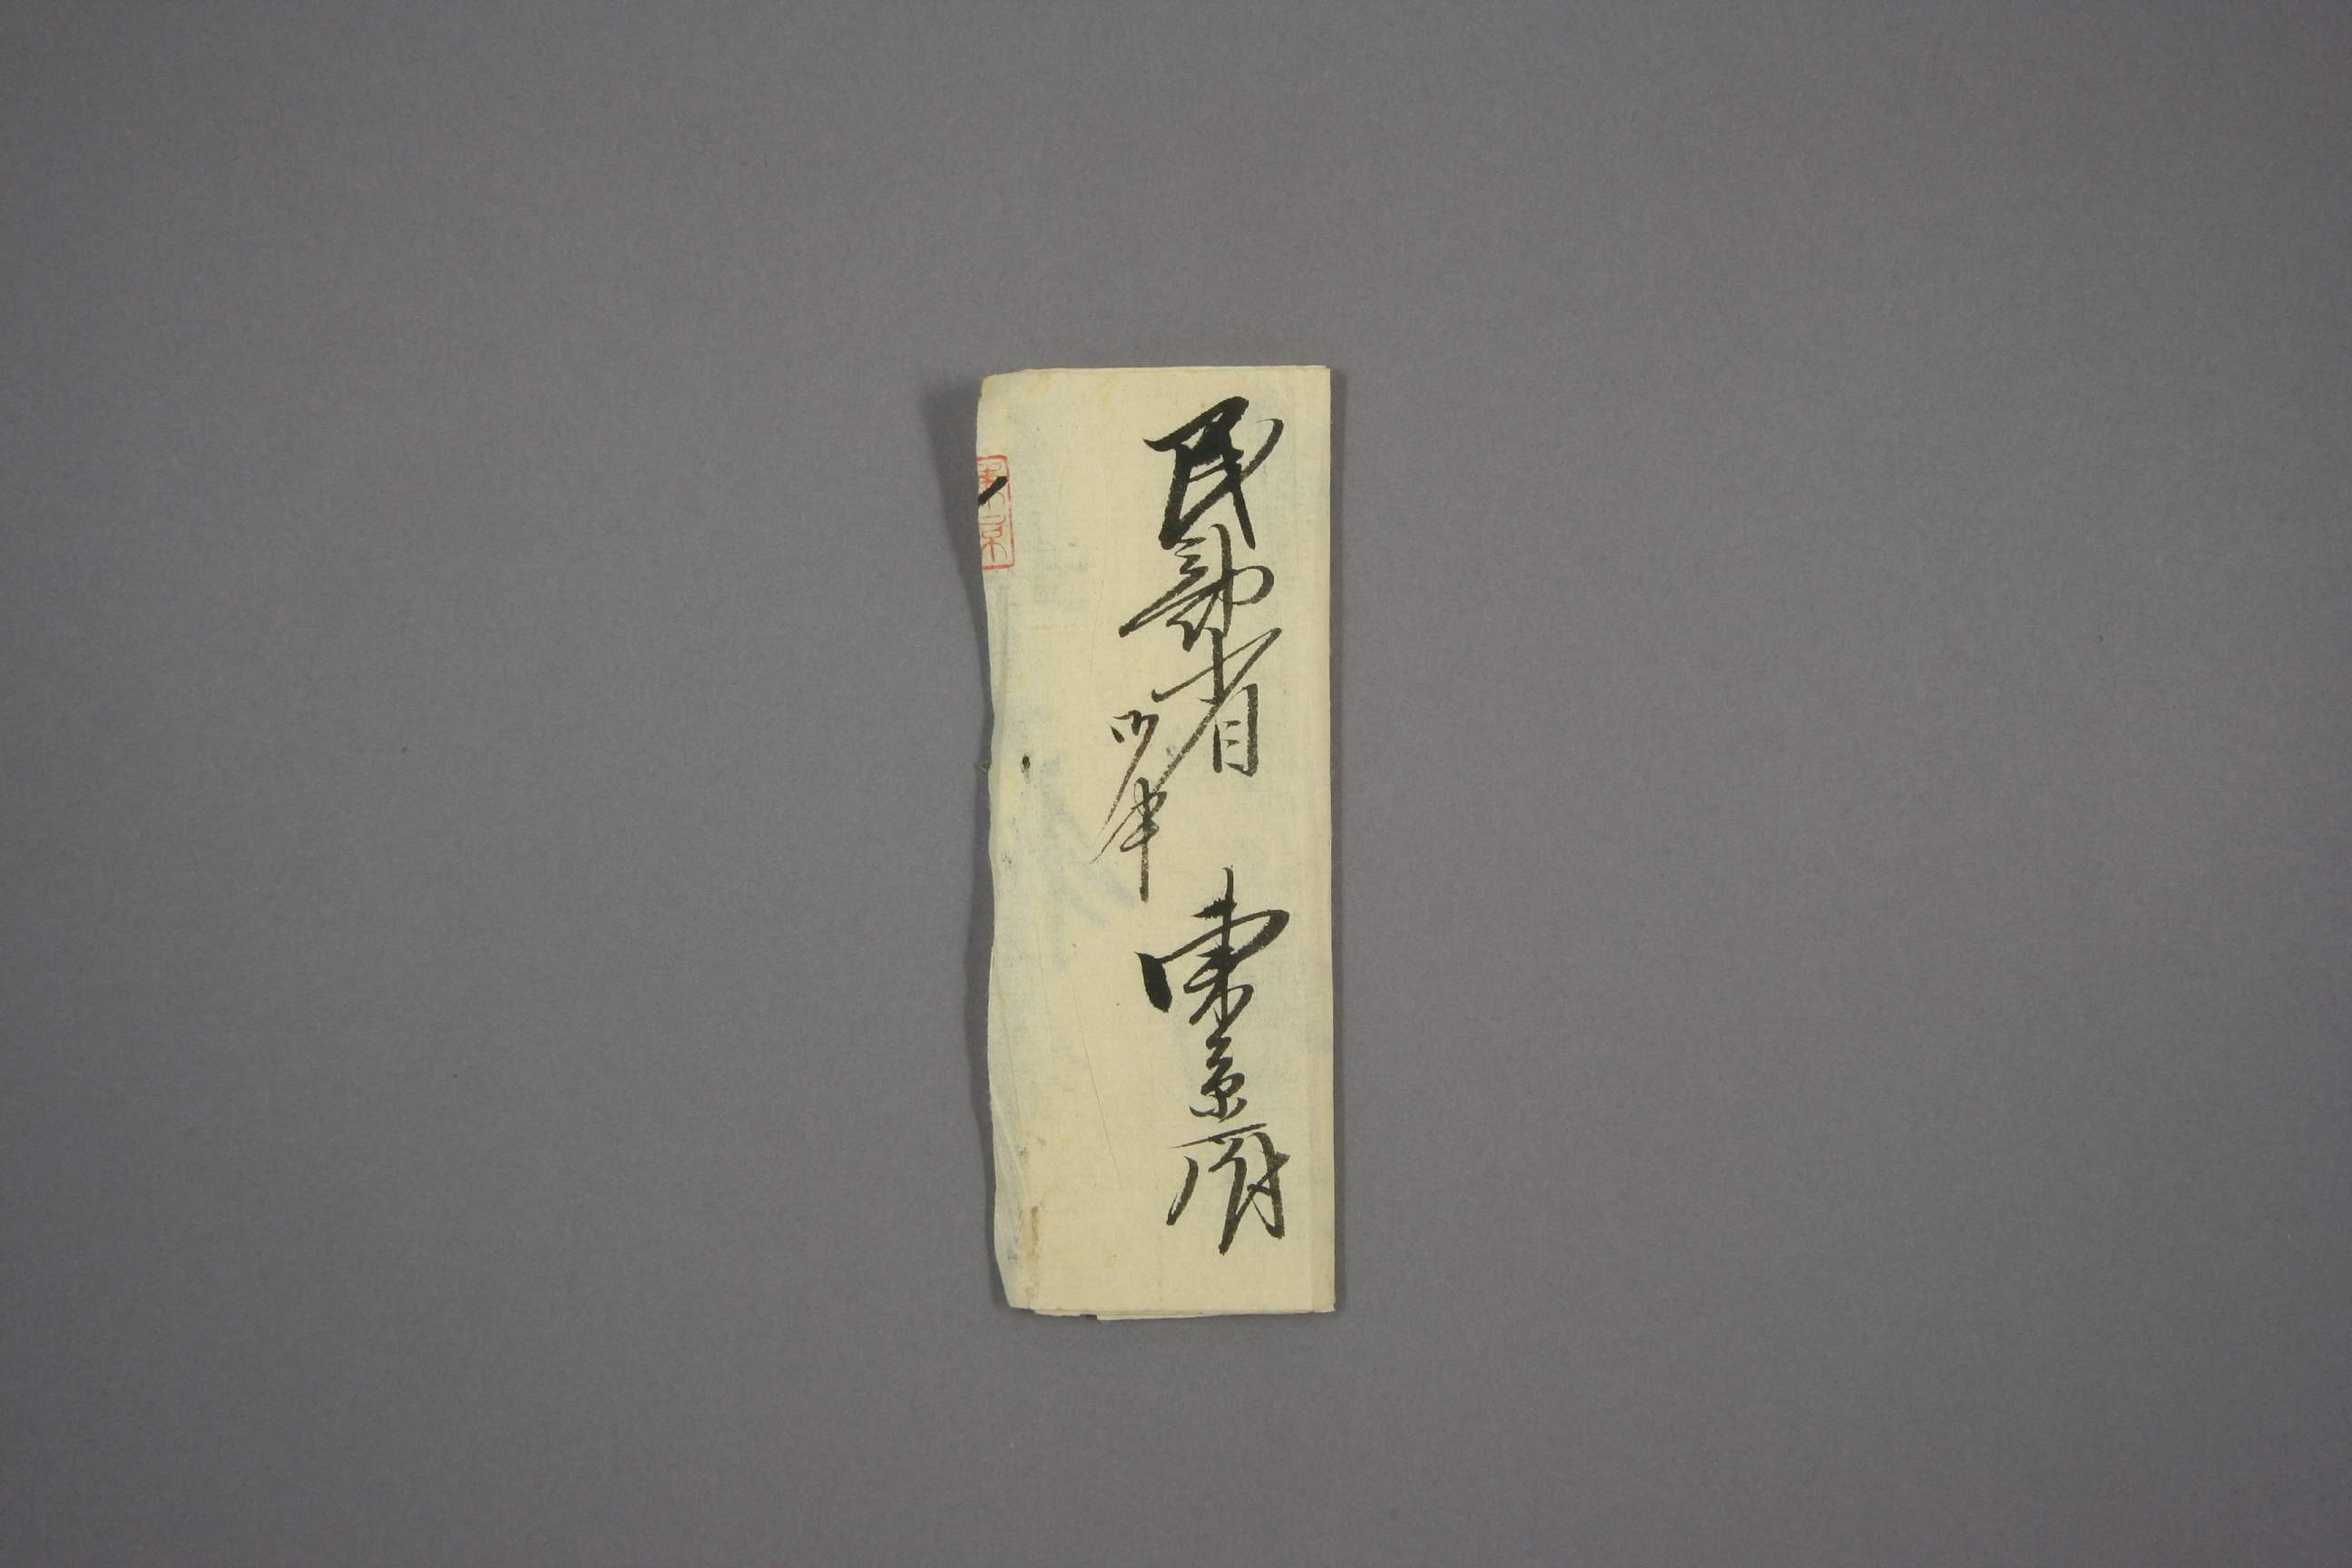 民部省
御中
東京府